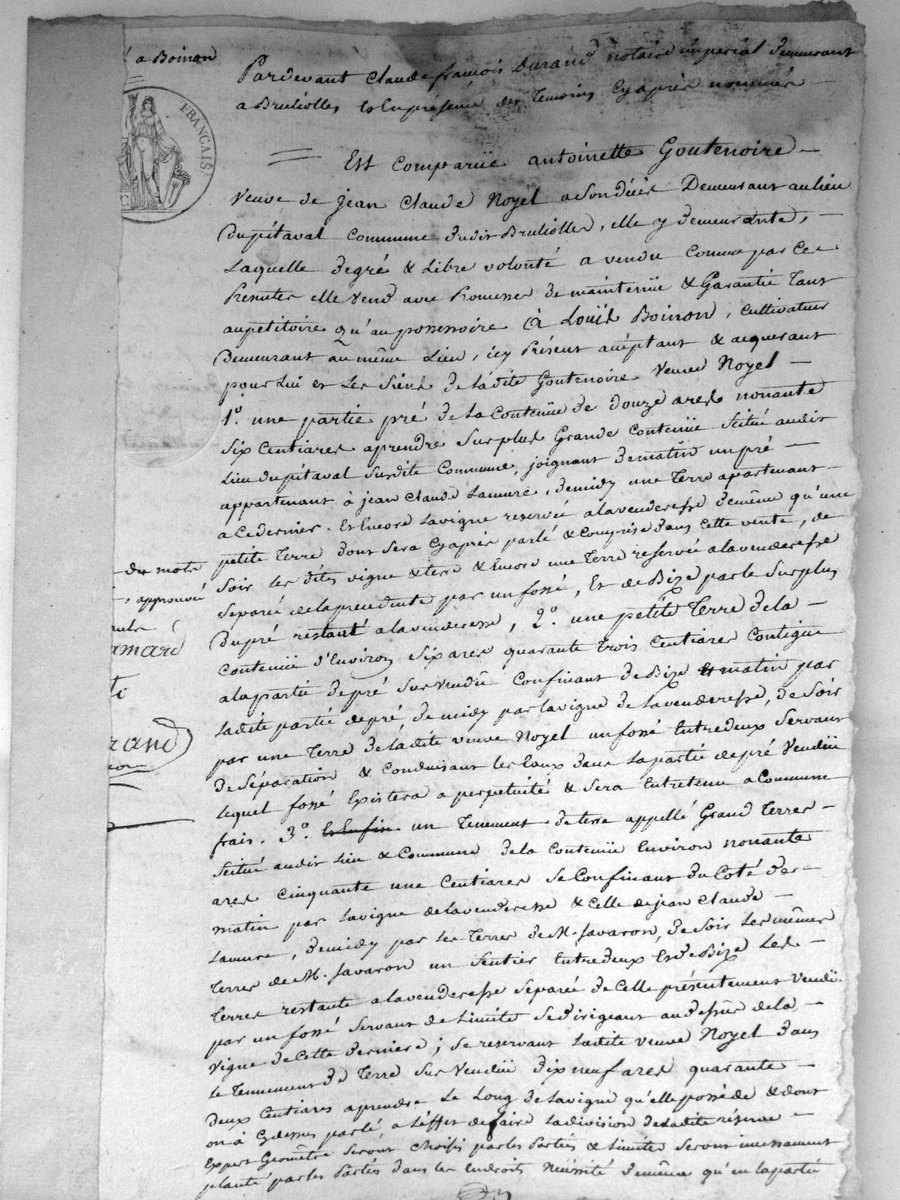 a Boinon
FRANÇAIS
Pardevant Claude françois Durand notaire imperial demeurant
a Brullolles & En présence des temoins Cyaprès nommés —
Est Comparüe antoinette Goutenoire —
Veuve de jean Claude Noyel a son décès Demeurant au lieu
Dupitaval Commune dudit Brullolles, elle y demeurante, —
Laquelle degré & Libre volonté a vendu Comme par Ces
Presentes elle Vend avec Promesse de maintenüe & Garantie tant
aupetitoire qu'au possessoire à Loüis Boinon, Cultivateur
Demeurant au même Lieu, icy Présent acceptant & acquerant
pour Lui et Les Siens de Ladite Goutenoire Veuve Noyel —
1.º une partie pré de La Contenüe de douze ares nonante
Six Centiares aprendre Sur plus Grande Contenüe Scitué audit
Lieu Dupitaval Susdite Commune, joignant de matin un pré —
appartenant à jean Claude Lamure, demidy une Terre apartenant
a Ce dernier. Et Encore La vigne reservée alavenderesse demême qu'une
petite Terre dont Sera Cyaprès parlé & Comprise dans Cette vente, de
Soir les dites vigne & terre & Encore une Terre reservée alavenderesse
Separé de la precedente par un fossé, Et de Bize par le Surplus
Du pré restant alavenderesse, 2.º une petite Terre de la —
Contenüe d'Environ Six ares quarante trois Centiares Contigue
a la partie de pré Sus vendüe Confinant de Bize & matin par
Ladite partie de pré, de midy par la vigne de Lavenderesse, de Soir
par une Terre de Ladite veuve Noyel un fossé Entredeux Servant
de Séparation & Conduisant les Eaux dans La partie de pré Vendüe
Lequel fossé Existera a perpetuité & Sera Entretenu a Commune
frais. 3.º Et Enfin un Tenement de terre appellé Grand Terres —
Scitué audit Lieu & Commune de la Contenüe Environ nonante
ares Cinquante une Centiares se Confinant du Coté de —
matin par La vigne de la venderesse & Celle de jean Claude —
Lamure, de midy par les Terres de M. Javaron, de Soir Les mêmes
Terres de M. Javaron un Sentier Entredeux Et de Bize Les —
Terres restante a la venderesse Séparé de Celle présentement Vendüe
par un fossé Servant de Limite Se dirigeant au dessus de la —
Vigne de Cette derniere; Se reservant Ladite veuve Noyel Dans
le Tennement de Terre Sus Vendüe Dix neuf ares quarante —
Deux Centiares aprendre Le Long de La vigne qu'elle possède & dont
on à Cydessus parlé, a l'effet de faire La division de Ladite réserve —
Expert Geomêtre Seront Choisis par les Parties & Limite Seront incessament
planté par les Parties dans les Endroits Nécessité de même qu'en la partie
des mots
approuvé
Lamure
Durand